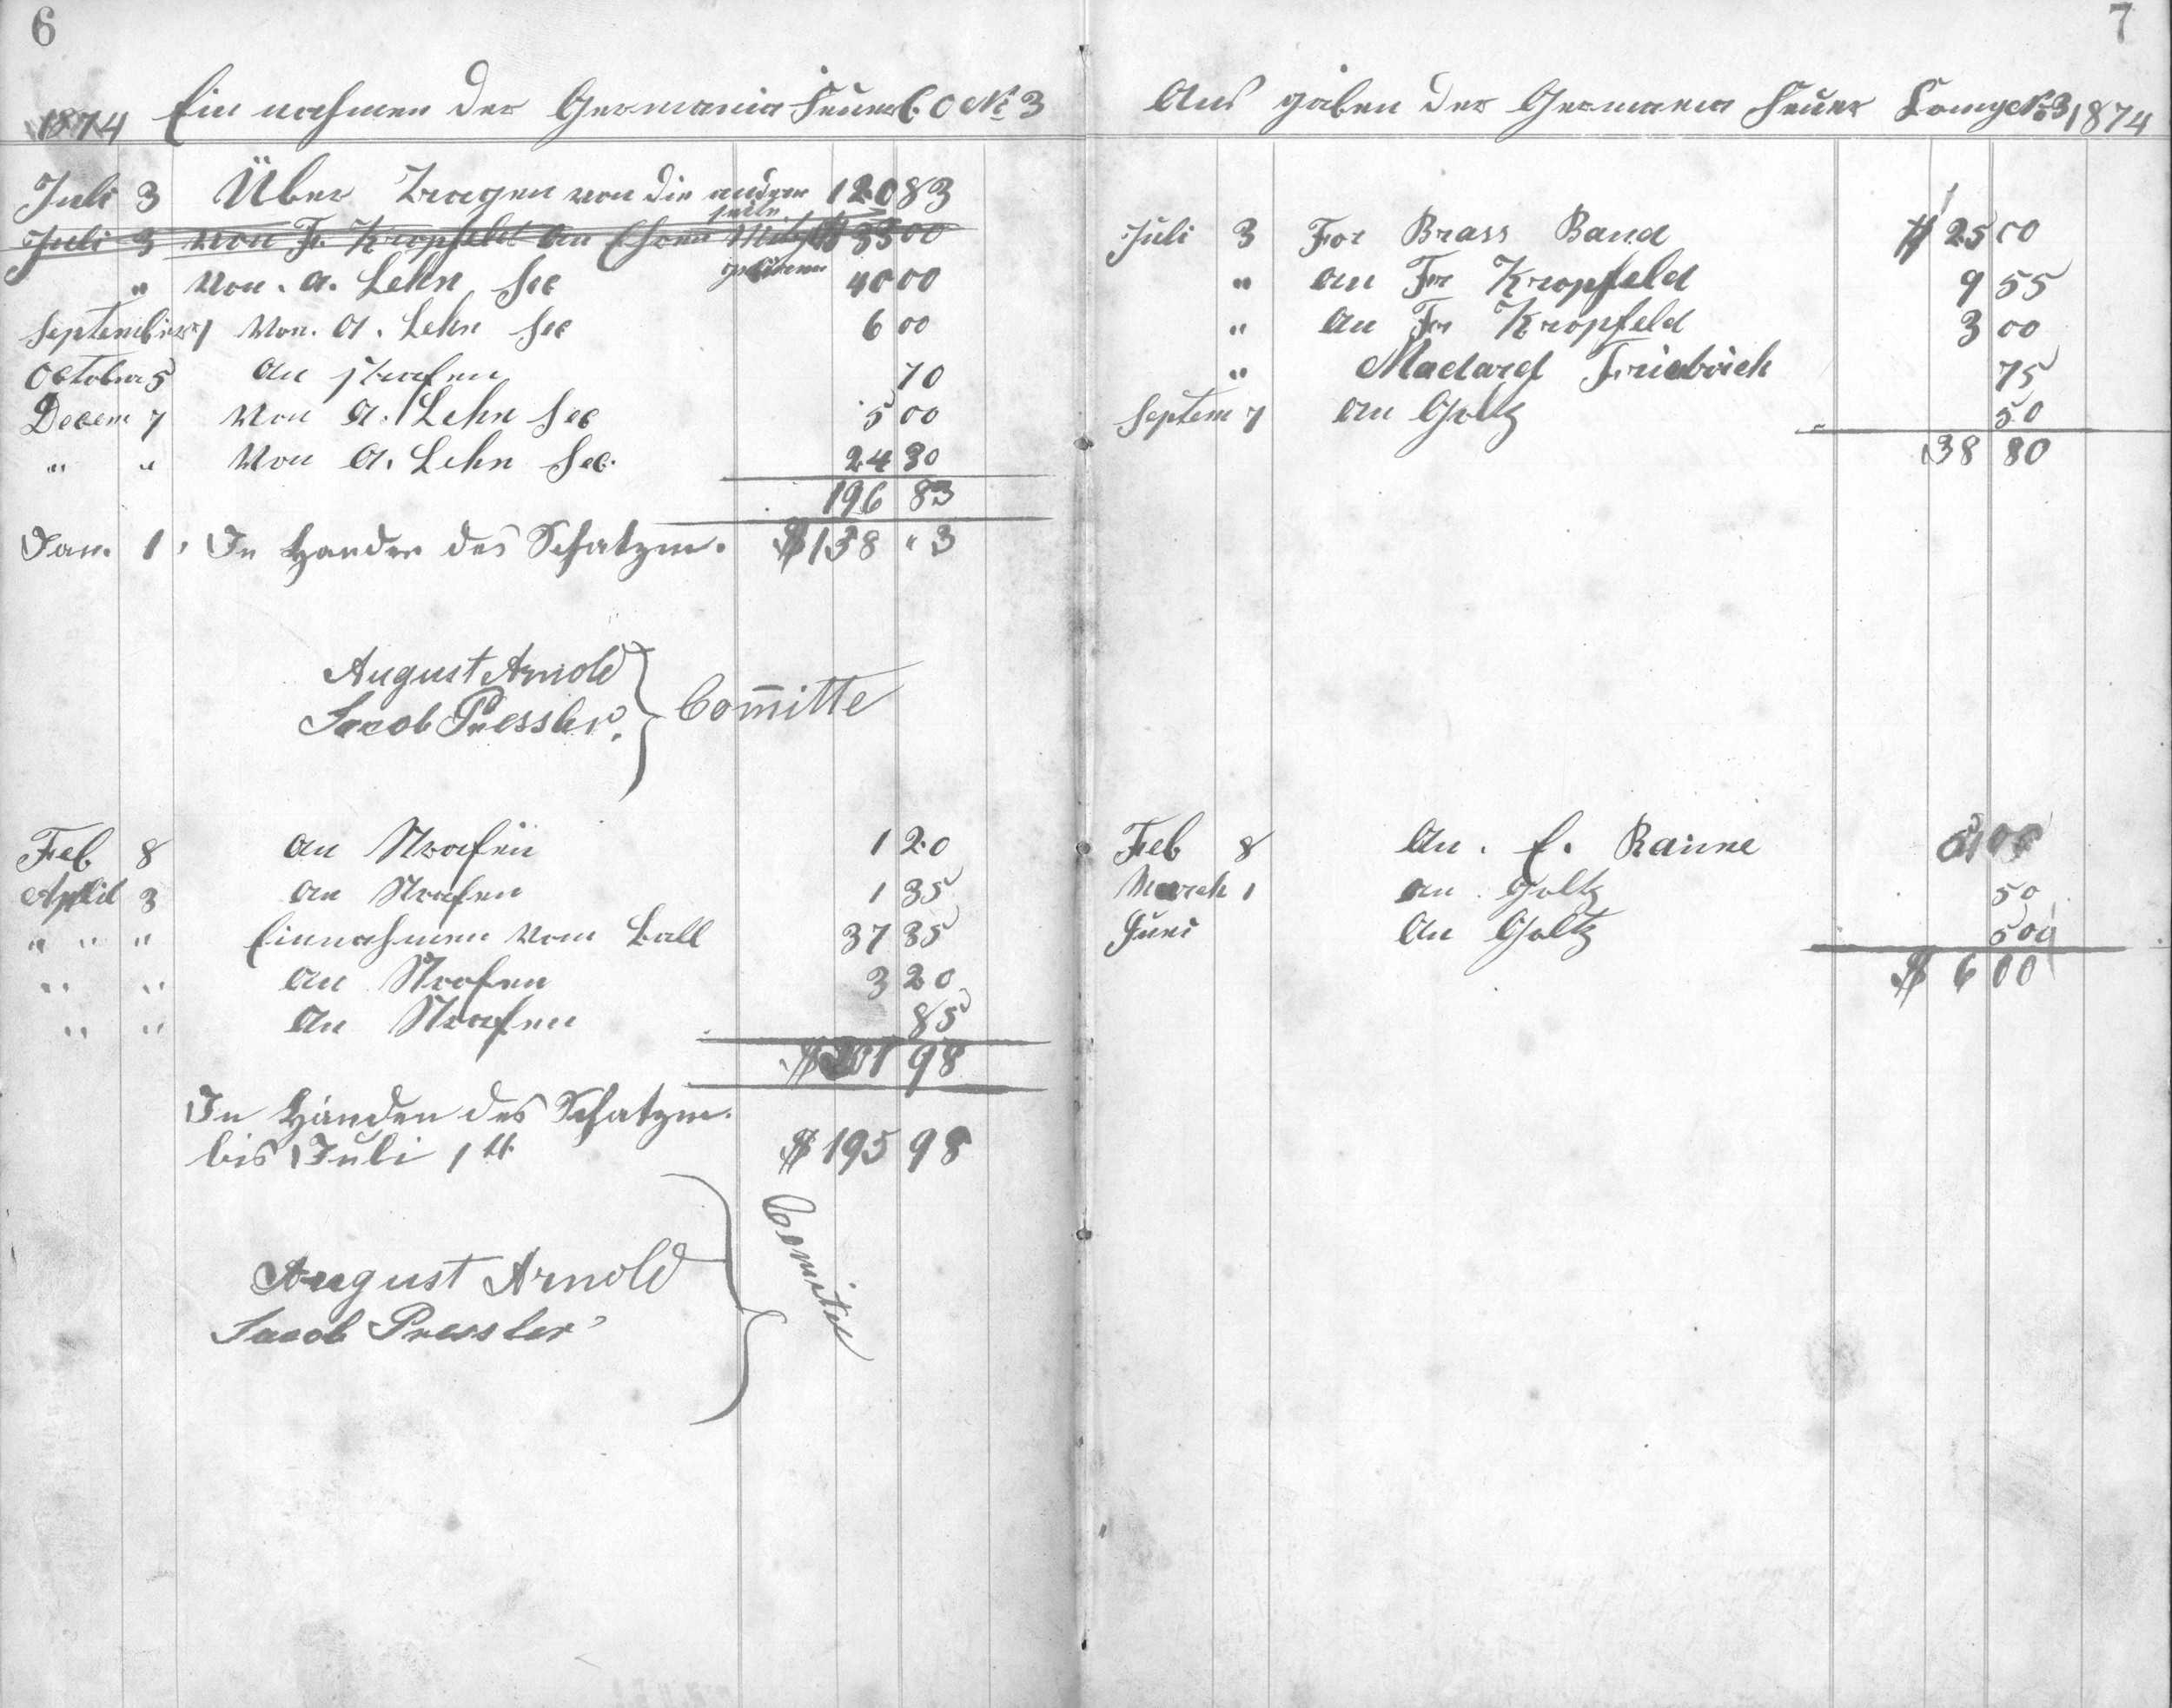 6
1874 Ein nahmen der Germania Feuer C.O No 3
Juli 3 Über tragen von die andere seite 120 83
Juli 3 von Fr. Kropfeld an 35 00
" Von. A. Lehn Sec 40 00
September 7 Von. A. Lehn Sec 6 00
October 5 An strafen 70
Decem 7 Von A. Lehn Sec 5 00
" " Von A. Lehn Sec. 24 30
196 83
Jan. 1, In Hander des Schatzm. $138 " 3
August Arnold
Jacob Pressler. } Com̄itte
Feb 8 an Strafen 1 20
April 3 an Strafen 1 35
" " " Einnahmen vom Ball 37 35
" " an Strafen 3 20
" " An Strafen 85
$201 98
In Händen des Schatzm.
bis Juli 1st $195 98
August Arnold
Jacob Pressler } Comitte
7
Aus gaben der Germania Feuer Compe No 3 1874
Juli 3 For Brass Band $25 00
" an Fr Kropfeld 9 55
" an Fr Kropfeld 3 00
" Madard Friedrich 75
Septem 7 an Goltz 50
38 80
Feb 8 An. C. Rainne
March 1 an Goltz 50
Juni An Goltz 500
$ 6 00